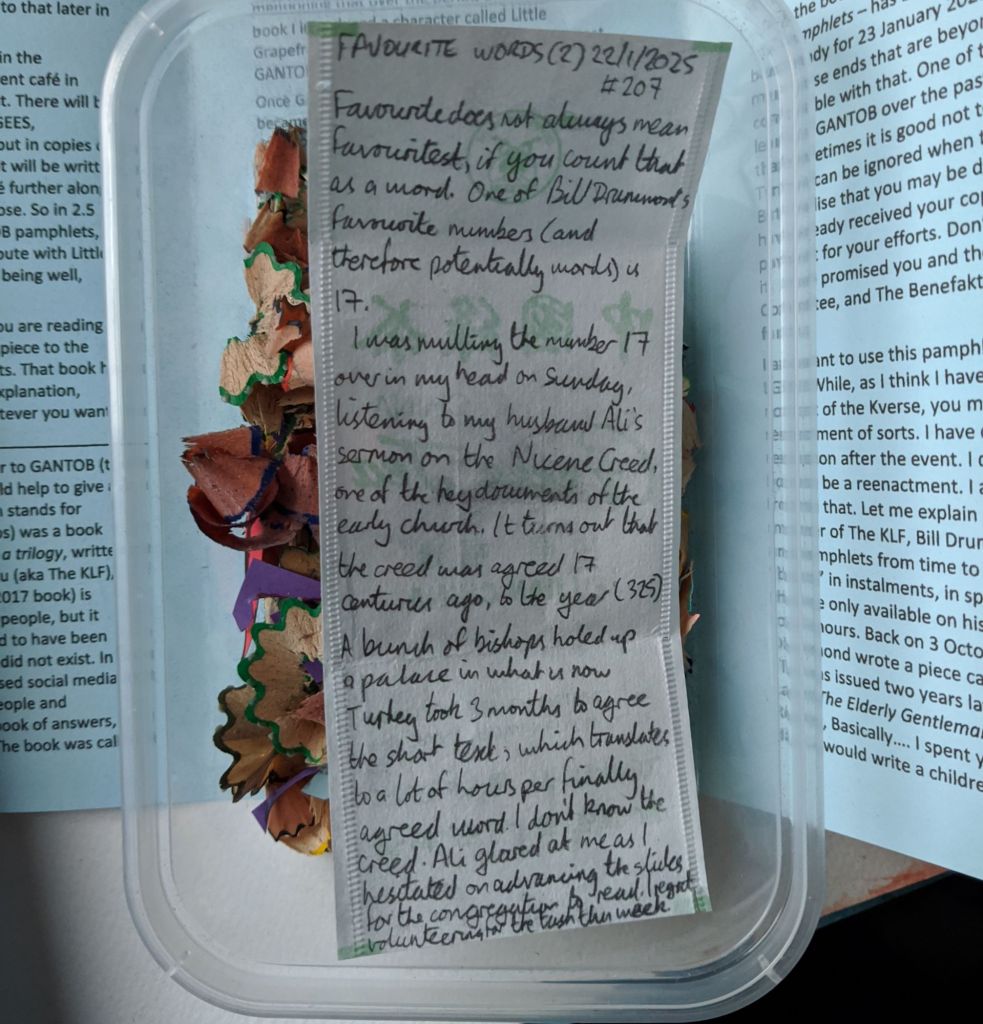 to that later in
in the
ent café in
t. There will b
SEES,
out in copies
t will be writt
é further alon
ose. So in 2.5
B pamphlets,
oute with Little
being well,
ou are reading
piece to the
ts. That book h
xplanation,
tever you want
r to GANTOB (t
ld help to give
n stands for
os) was a book
a trilogy, writte
u (aka The KLF),
2017 book) is
people, but it
d to have been
did not exist. In
sed social media
eople and
ook of answers,
he book was cal
mentioning that over the
book I in a character called Little
Grapefr
GANTOB
Once G
became
FAVOURITE WORDS (2) 22/1/2025
#207
Favourite does not always mean
favouritest, if you count that
as a word. One of Bill Drummond's
favourite numbers (and
therefore potentially words) is
17.
I was mulling the number 17
over in my head on Sunday,
listening to my husband Ali's
sermon on the Nicene Creed,
one of the key documents of the
early church. It turns out that
the creed was agreed 17
centuries ago, to the year (325)
A bunch of bishops holed up
a palace in what is now
Turkey took 3 months to agree
the short text, which translates
to a lot of hours per finally
agreed word. I don't know the
creed. Ali glared at me as I
hesitated on advancing the slides
for the congregation to read. I regret
volunteering for the task this week.
the bo
mphlets – has
dy for 23 January 202
se ends that are beyo
ble with that. One of t
GANTOB over the pas
etimes it is good not t
can be ignored when t
lise that you may be d
eady received your cop
t for your efforts. Don'
promised you and the
ee, and The Benefakt
ant to use this pamphl
While, as I think I have
of the Kverse, you m
ment of sorts. I have
on after the event. I d
be a reenactment. I a
that. Let me explain
r of The KLF, Bill Drum
mphlets from time to
' in instalments, in sp
e only available on his
hours. Back on 3 Octo
ond wrote a piece ca
s issued two years la
The Elderly Gentlema
, Basically.... I spent y
would write a childre